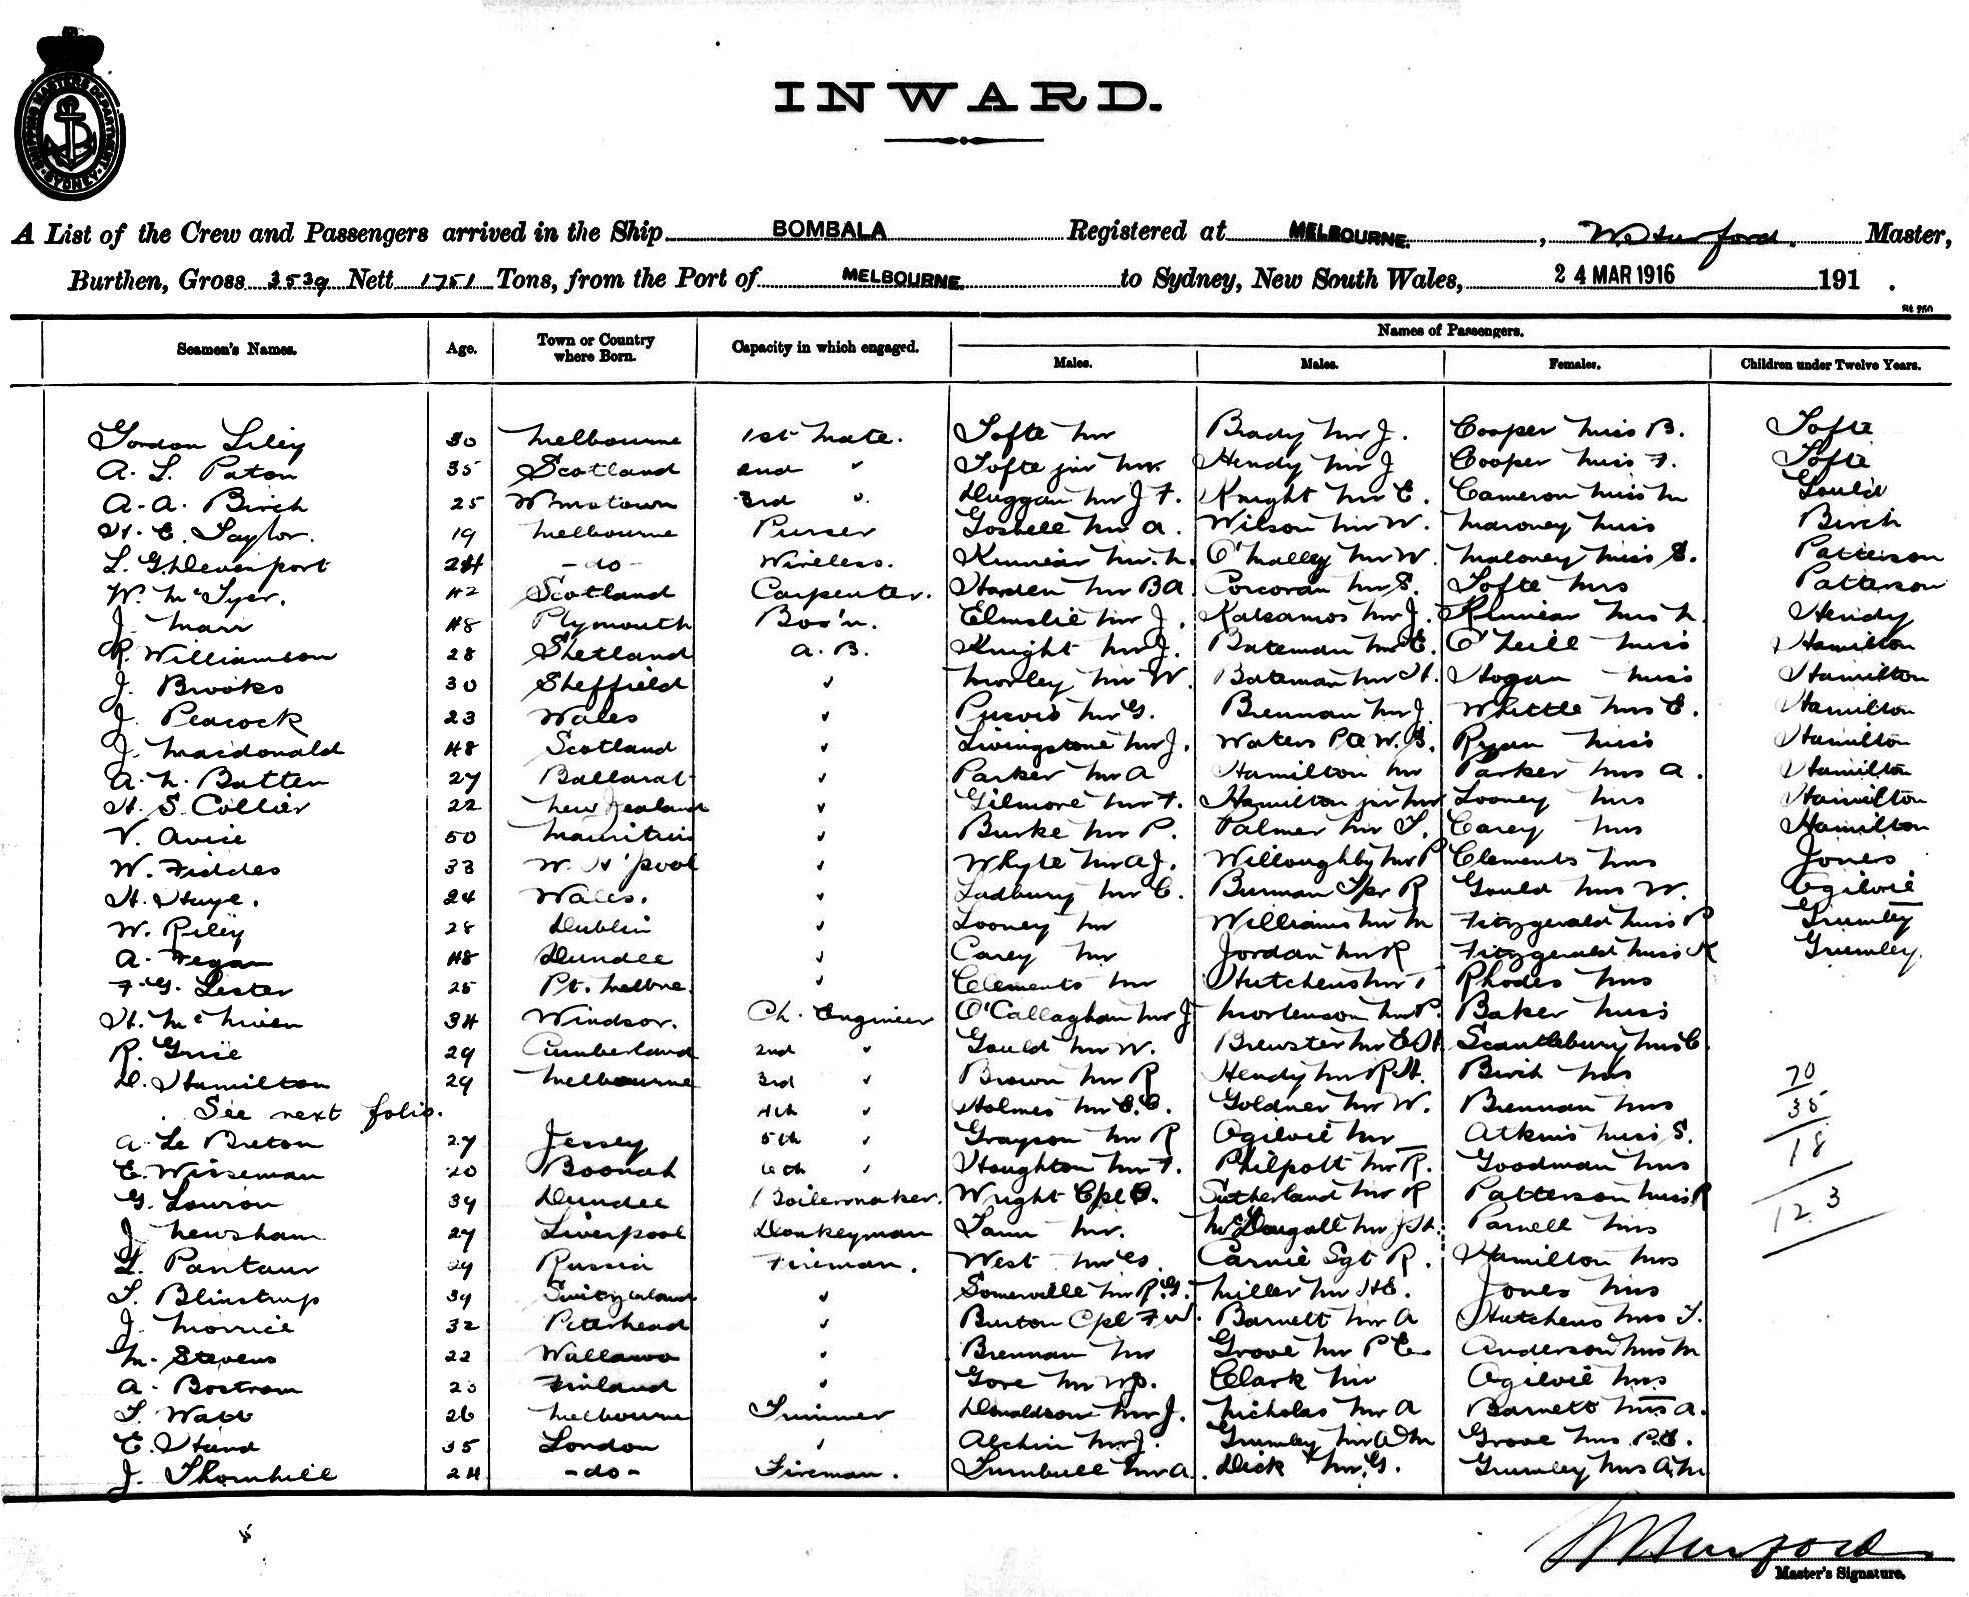 SHIPPING MASTERS DEPARTMENT SYDNEY
INWARD.
A List of the Crew and Passengers arrived in the Ship BOMBALA Registered at MELBOURNE. , Master,
Burthen, Gross 3539 Nett 1751 Tons, from the Port of MELBOURNE. to Sydney, New South Wales, 24 MAR 1916 191 .
Names of Passengers.
Seamen's Names. Age. Town or Country where Born. Capacity in which engaged. Males. Males. Females. Children under Twelve Years.
Gordon Liley 30 Melbourne 1st Mate. Tofte Mr Brady Mr J. Cooper Miss B. Tofte
A. L. Paton 35 Scotland 2nd " Tofte jnr Mr. Hendy Mr J Cooper Miss F. Tofte
A. A. Birch 25 Wmstown 3rd " Duggan Mr J F. Knight Mr E. Cameron Miss M Gould
H. E. Taylor. 19 Melbourne Purser Gosbell Mr A. Wilson Mr W. Maroney Miss Birch
L. G. Devenport 24 - do - Wireless. Kinnear Mr. N. O'Malley Mr W. Maloney Miss S. Patterson
W. McIyer. 42 Scotland Carpenter. Harden Mr B A Corcoran Mr S. Tofte Mrs Patterson
J. Marr 48 Plymouth Bos'n. Elmslie Mr J. Katsamos Mr J. Kinnear Mrs N. Hendy
R. Williamson 28 Shetland A. B. Knight Mr J. Bateman Mr E. O'Neill Miss Hamilton
J. Brooks 30 Sheffield ✓ Morley Mr W. Bateman Mr H. Hogan Miss Hamilton
J. Peacock 23 Wales ✓ Purvis Mr G. Brennan Mr J. Whittle Mrs E. Hamilton
J. Macdonald 48 Scotland ✓ Livingstone Mr J. Waters Pte W. G. Ryan Miss Hamilton
A. N. Batten 27 Ballarat ✓ Parker Mr A Hamilton Mr Parker Mrs A. Hamilton
H. S. Collier 22 New Zealand ✓ Gilmore Mr F. Hamilton jnr Mr Looney Mrs Hamilton
V. Avice 50 Mauritius ✓ Burke Mr P. Palmer Mr T. Carey Mrs Hamilton
W. Fiddes 33 W. H'pool ✓ Whyte Mr A J. Willoughby Mr P Clements Mrs Jones
H. Huye. 24 Wales. ✓ Tadbury Mr C. Burman Spr R Gould Mrs W. Ogilvie
W. Riley 28 Dublin ✓ Looney Mr Williams Mr M Fitzgerald Miss P Grumley
A. Fegan 48 Dundee ✓ Carey Mr Jordan Mr R Fitzgerald Miss K Grumley
F. G. Lester 25 Pt. Melbne. ✓ Clements Mr Hutchens Mr T Rhodes Mrs
H. McNiven 34 Windsor. Ch. Engineer O'Callaghan Mr J Mortenson Mr P. Baker Miss
R. Grice 29 Cumberland 2nd " Gould Mr W. Brewster Mr E H. Scantlebury Mrs C.
D. Hamilton 29 Melbourne 3rd " Brown Mr R Hendy Mr R H. Birch Mrs 70
See next folio. 4th " Holmes Mr C. C. Goldner Mr W. Brennan Mrs 35
A. Le Breton 27 Jersey 5th " Grayson Mr R Ogilvie Mr Atkins Miss S. 18
E. Wiseman 20 Boonah 6th " Houghton Mr F. Philpott Mr R. Goodman Mrs
G. Lowson 39 Dundee Boilermaker. Wright Cpl G. Sutherland Mr R Patterson Miss R 123
J. Newsham 27 Liverpool Donkeyman Tann Mr. McDougall Mr J H. Parnell Mrs
L. Pantaur 29 Russia Fireman. West Mr G. Carnie Sgt R. Hamilton Mrs
T. Blinstrup 39 Switzerland ✓ Somerville Mr R. G. Miller Mr H E. Jones Mrs
J. Morrice 32 Peterhead ✓ Burton Cpl F W. Barnett Mr A Hutchens Mrs T.
M. Stevens 22 Wallaroo ✓ Brennan Mr Grove Mr P C. Anderson Mrs M
A. Bostrom 23 Finland ✓ Gore Mr W P. Clark Mr Ogilvie Mrs
T. Watt 26 Melbourne Trimmer Donaldson Mr J. Nicholas Mr A Barnett Mrs A.
E. Hand 35 London ✓ Alchin Mr J. Grumley Mr A M Grove Mrs P. C.
J. Thornhill 24 - do - Fireman. Turnbull Mr A. Dick Mr. G. Grumley Mrs A. M.
Master's Signature.